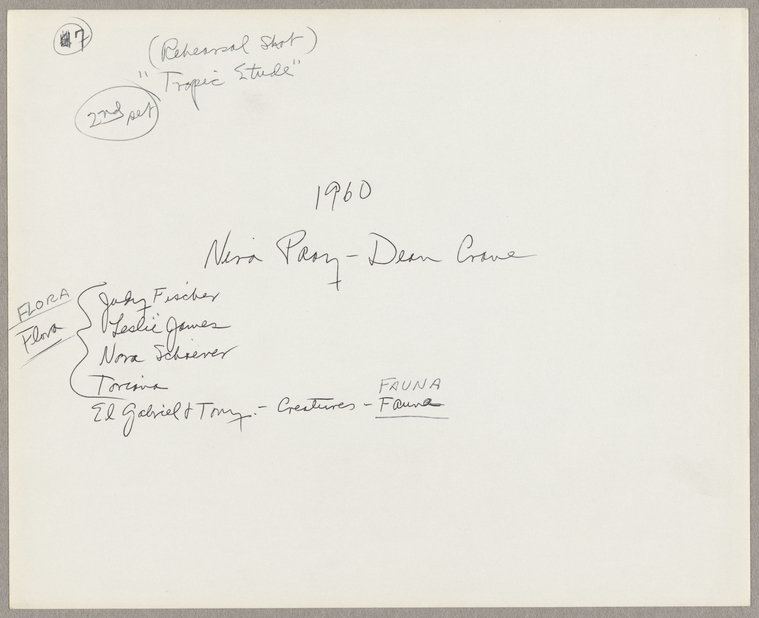 7
(Rehearsal Shot)
"Tropic Etude"
2nd set
1960
Nira Paaz - Dean Crane
FLORA
Flora
Judy Fischer
Leslie James
Nora
Toriana
El Gabriel & Tony - Creatures - Fauna
FAUNA